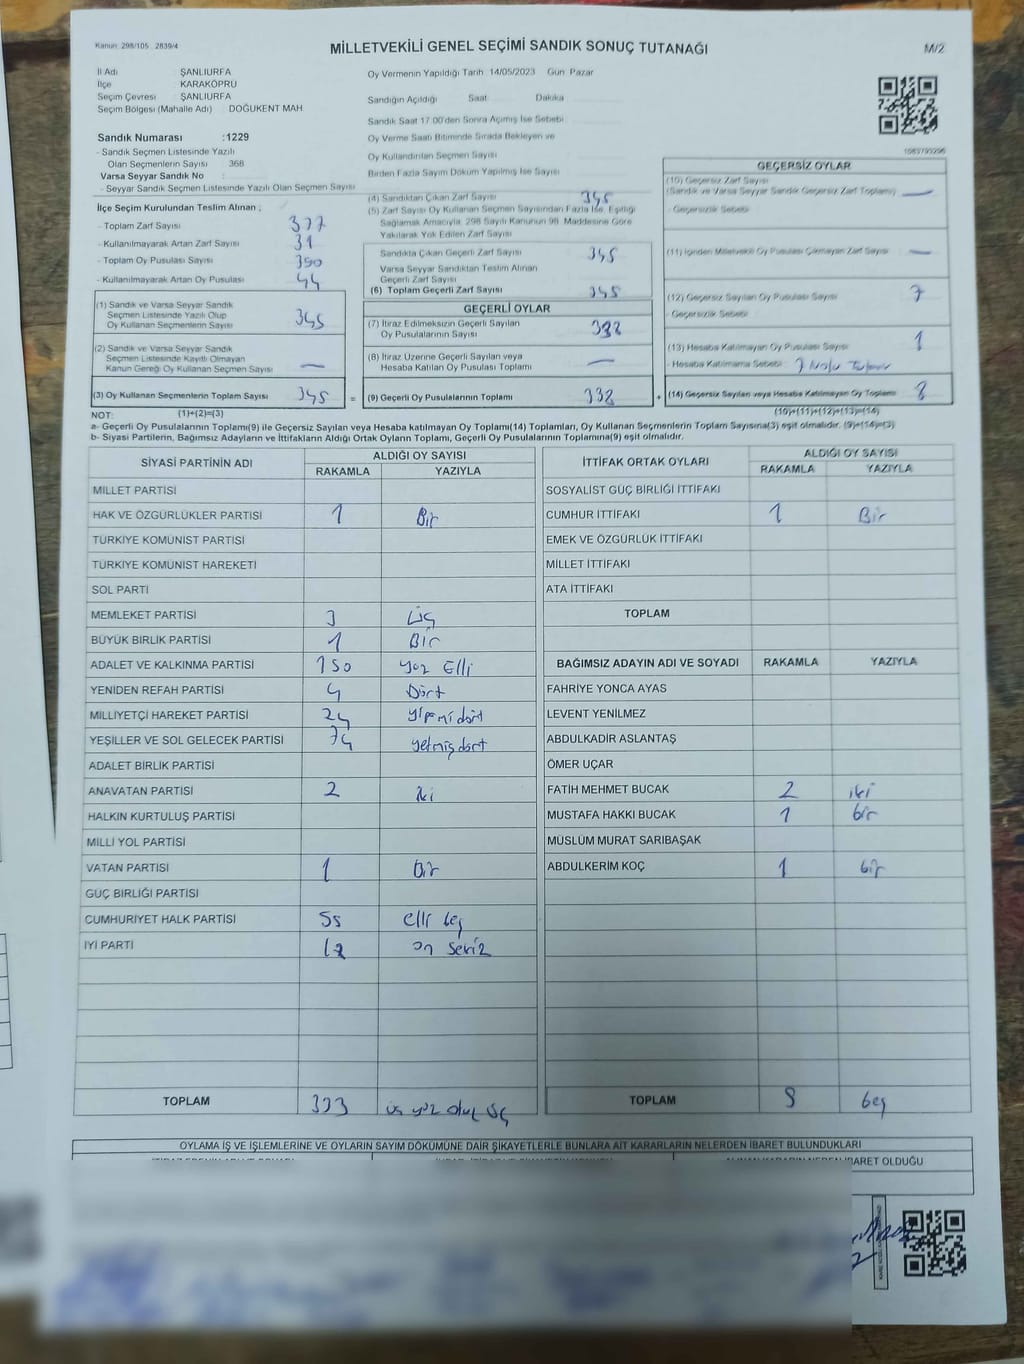 Kanun: 298/105 , 2839/4
MİLLETVEKİLİ GENEL SEÇİMİ SANDIK SONUÇ TUTANAĞI
M/2
İl Adı : ŞANLIURFA
İlçe KARAKÖPRÜ
Seçim Çevresi : ŞANLIURFA
Seçim Bölgesi (Mahalle Adı) : DOĞUKENT MAH.
Sandık Numarası :1229
- Sandık Seçmen Listesinde Yazılı
Olan Seçmenlerin Sayısı 368
Varsa Seyyar Sandık No :
- Seyyar Sandık Seçmen Listesinde Yazılı Olan Seçmen Sayısı
Oy Vermenin Yapıldığı Tarih 14/05/2023 Gün Pazar
Sandığın Açıldığı Saat Dakika
Sandık Saat 17.00'den Sonra Açılmış İse Sebebi
Oy Verme Saati Bitiminde Sırada Bekleyen ve
Oy Kullandırılan Seçmen Sayısı
Birden Fazla Sayım Döküm Yapılmış İse Sayısı
İlçe Seçim Kurulundan Teslim Alınan ;
- Toplam Zarf Sayısı 377
- Kullanılmayarak Artan Zarf Sayısı 31
- Toplam Oy Pusulası Sayısı 390
- Kullanılmayarak Artan Oy Pusulası 44
(1) Sandık ve Varsa Seyyar Sandık
Seçmen Listesinde Yazılı Olup
Oy Kullanan Seçmenlerin Sayısı 345
(2) Sandık ve Varsa Seyyar Sandık
Seçmen Listesinde Kayıtlı Olmayan
Kanun Gereği Oy Kullanan Seçmen Sayısı —
(3) Oy Kullanan Seçmenlerin Toplam Sayısı 345 =
(4) Sandıktan Çıkan Zarf Sayısı 345
(5) Zarf Sayısı Oy Kullanan Seçmen Sayısından Fazla İse, Eşitliği
Sağlamak Amacıyla, 298 Sayılı Kanunun 98. Maddesine Göre
Yakılarak Yok Edilen Zarf Sayısı
Sandıkta Çıkan Geçerli Zarf Sayısı 345
Varsa Seyyar Sandıktan Teslim Alınan
Geçerli Zarf Sayısı
(6) Toplam Geçerli Zarf Sayısı 345
GEÇERLİ OYLAR
(7) İtiraz Edilmeksizin Geçerli Sayılan
Oy Pusulalarının Sayısı 338
(8) İtiraz Üzerine Geçerli Sayılan veya
Hesaba Katılan Oy Pusulası Toplamı —
(9) Geçerli Oy Pusulalarının Toplamı 338 +
GEÇERSİZ OYLAR
(10) Geçersiz Zarf Sayısı
(Sandık ve Varsa Seyyar Sandık Geçersiz Zarf Toplamı) —
- Geçersizlik Sebebi
(11) İçinden Milletvekili Oy Pusulası Çıkmayan Zarf Sayısı —
(12) Geçersiz Sayılan Oy Pusulası Sayısı 7
- Geçersizlik Sebebi
(13) Hesaba Katılmayan Oy Pusulası Sayısı 1
- Hesaba Katılmama Sebebi 7 Nolu
(14) Geçersiz Sayılan veya Hesaba Katılmayan Oy Toplamı 8
NOT: (1)+(2)=(3) (10)+(11)+(12)+(13)=(14)
a- Geçerli Oy Pusulalarının Toplamı(9) ile Geçersiz Sayılan veya Hesaba katılmayan Oy Toplamı(14) Toplamları, Oy Kullanan Seçmenlerin Toplam Sayısına(3) eşit olmalıdır. (9)+(14)=(3)
b- Siyasi Partilerin, Bağımsız Adayların ve İttifakların Aldığı Ortak Oyların Toplamı, Geçerli Oy Pusulalarının Toplamına(9) eşit olmalıdır.
SİYASİ PARTİNİN ADI ALDIĞI OY SAYISI
RAKAMLA YAZIYLA
MİLLET PARTİSİ
HAK VE ÖZGÜRLÜKLER PARTİSİ 1 Bir
TÜRKİYE KOMÜNİST PARTİSİ
TÜRKİYE KOMÜNİST HAREKETİ
SOL PARTİ
MEMLEKET PARTİSİ 3 üç
BÜYÜK BİRLİK PARTİSİ 1 Bir
ADALET VE KALKINMA PARTİSİ 150 yüz Elli
YENİDEN REFAH PARTİSİ 4 Dört
MİLLİYETÇİ HAREKET PARTİSİ 24 yirmi dört
YEŞİLLER VE SOL GELECEK PARTİSİ 74 yetmiş dört
ADALET BİRLİK PARTİSİ
ANAVATAN PARTİSİ 2 iki
HALKIN KURTULUŞ PARTİSİ
MİLLİ YOL PARTİSİ
VATAN PARTİSİ 1 Bir
GÜÇ BİRLİĞİ PARTİSİ
CUMHURİYET HALK PARTİSİ 55 elli beş
İYİ PARTİ 18 on sekiz
TOPLAM 333 üç yüz otuz üç
İTTİFAK ORTAK OYLARI ALDIĞI OY SAYISI
RAKAMLA YAZIYLA
SOSYALİST GÜÇ BİRLİĞİ İTTİFAKI
CUMHUR İTTİFAKI 1 Bir
EMEK VE ÖZGÜRLÜK İTTİFAKI
MİLLET İTTİFAKI
ATA İTTİFAKI
TOPLAM
BAĞIMSIZ ADAYIN ADI VE SOYADI RAKAMLA YAZIYLA
FAHRİYE YONCA AYAS
LEVENT YENİLMEZ
ABDULKADİR ASLANTAŞ
ÖMER UÇAR
FATİH MEHMET BUCAK 2 iki
MUSTAFA HAKKI BUCAK 1 bir
MÜSLÜM MURAT SARIBAŞAK
ABDULKERİM KOÇ 1 bir
TOPLAM 5 beş
OYLAMA İŞ VE İŞLEMLERİNE VE OYLARIN SAYIM DÖKÜMÜNE DAİR ŞİKAYETLERLE BUNLARA AİT KARARLARIN NELERDEN İBARET BULUNDUKLARI